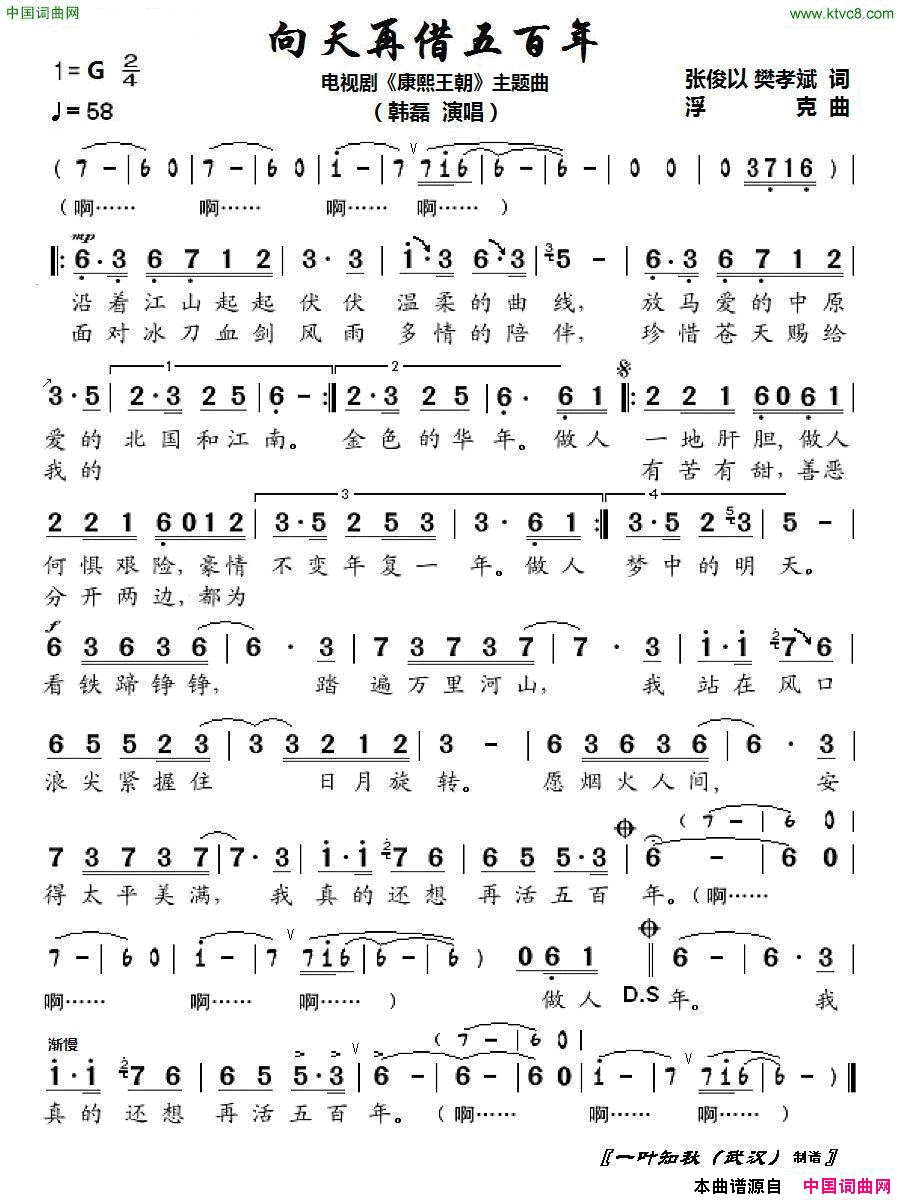 中国词曲网 www.ktvc8.com
向天再借五百年
1=G 2/4 电视剧《康熙王朝》主题曲 张俊以 樊孝斌 词
♩=58 (韩磊 演唱) 浮 克 曲
( 7 - | 6 0 | 7 - | 6 0 | i - | 7 7i6 | 6 - | 6 - | 0 0 | 0 3716 ) |
(啊…… 啊…… 啊…… 啊……)
mp
|: 6·3 6712 | 3·3 | i·3 6·3 | 35 - | 6·3 6712 |
沿着江山起起伏伏温柔的曲线, 放马爱的中原
面对冰刀血剑风雨多情的陪伴, 珍惜苍天赐给
1 2
3·5 | 2·3 25 | 6 - :| 2·3 25 | 6· 61 |: 221 6061 |
爱的北国和江南。金色的华年。做人一地肝胆,做人
我的 有苦有甜,善恶
3 4
221 6012 | 3·5 253 | 3· 61 :| 3·5 2 53 | 5 - |
何惧艰险,豪情不变年复一年。做人梦中的明天。
分开两边,都为
f
6 3636 | 6 · 3 | 7 3737 | 7 · 3 | i·i 2 76 |
看铁蹄铮铮, 踏遍万里河山, 我站在风口
65 523 | 3 3212 | 3 - | 6 3636 | 6 · 3 |
浪尖紧握住 日月旋转。 愿烟火人间, 安
( 7 - | 6 0 |
7 3737 | 7· 3 | i·i 2 76 | 65 5·3 | 6 - | 6 0 |
得太平美满, 我真的还想再活五百年。(啊……
7 - | 6 0 | i - | 7 7i6 | 6 - | 6 - ) | 0 61 || 6 - | 6 · 3 |
啊…… 啊…… 啊…… ) 做人 D.S 年。 我
渐慢 ( 7 - | 6 0 |
i·i 2 76 | 65 5·3 | 6 - | 6 - | 6 0 | i - | 7 7i6 | 6 - ) ||
真的还想再活五百年。(啊…… 啊…… 啊……)
〖一叶知秋(武汉)制谱〗
本曲谱源自 中国词曲网